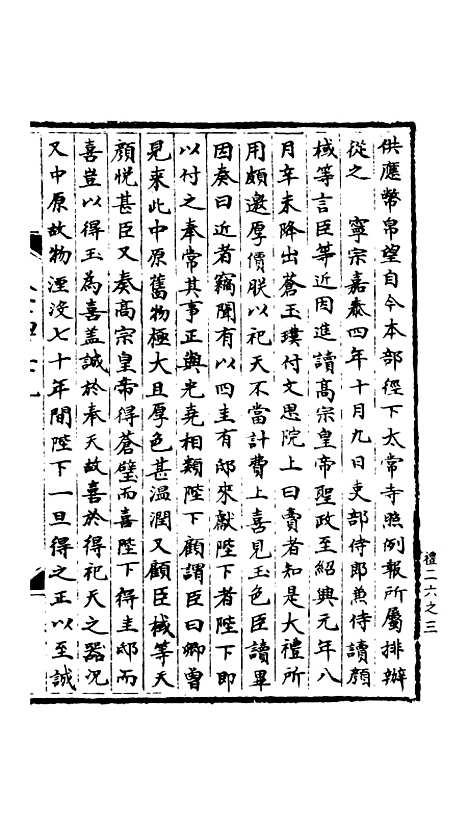 供應幣帛望自今本部徑下太常寺照例報所屬排辦
從之　寧宗嘉泰四年十月九日吏部侍郎兼侍讀顔
棫等言臣等近因進讀高宗皇帝聖政至紹興元年八
月辛未降出蒼玉璞付文思院上曰賣者知是大禮所
用頗邀厚價朕以祀天不當計費上喜見玉色臣讀畢
因奏曰近者竊聞有以四圭有邸來獻陛下者陛下即
以付之奉常其事正與光堯相類陛下顧謂臣曰卿曾
見来此中原舊物極大且厚色甚温潤又顧臣棫等天
顔悅甚臣又奏高宗皇帝得蒼璧而喜陛下得圭邸而
喜豈以得玉為喜盖誠於奉天故喜於得祀天之器況
又中原故物湮沒七十年間陛下一旦得之正以至誠
禮二六之三